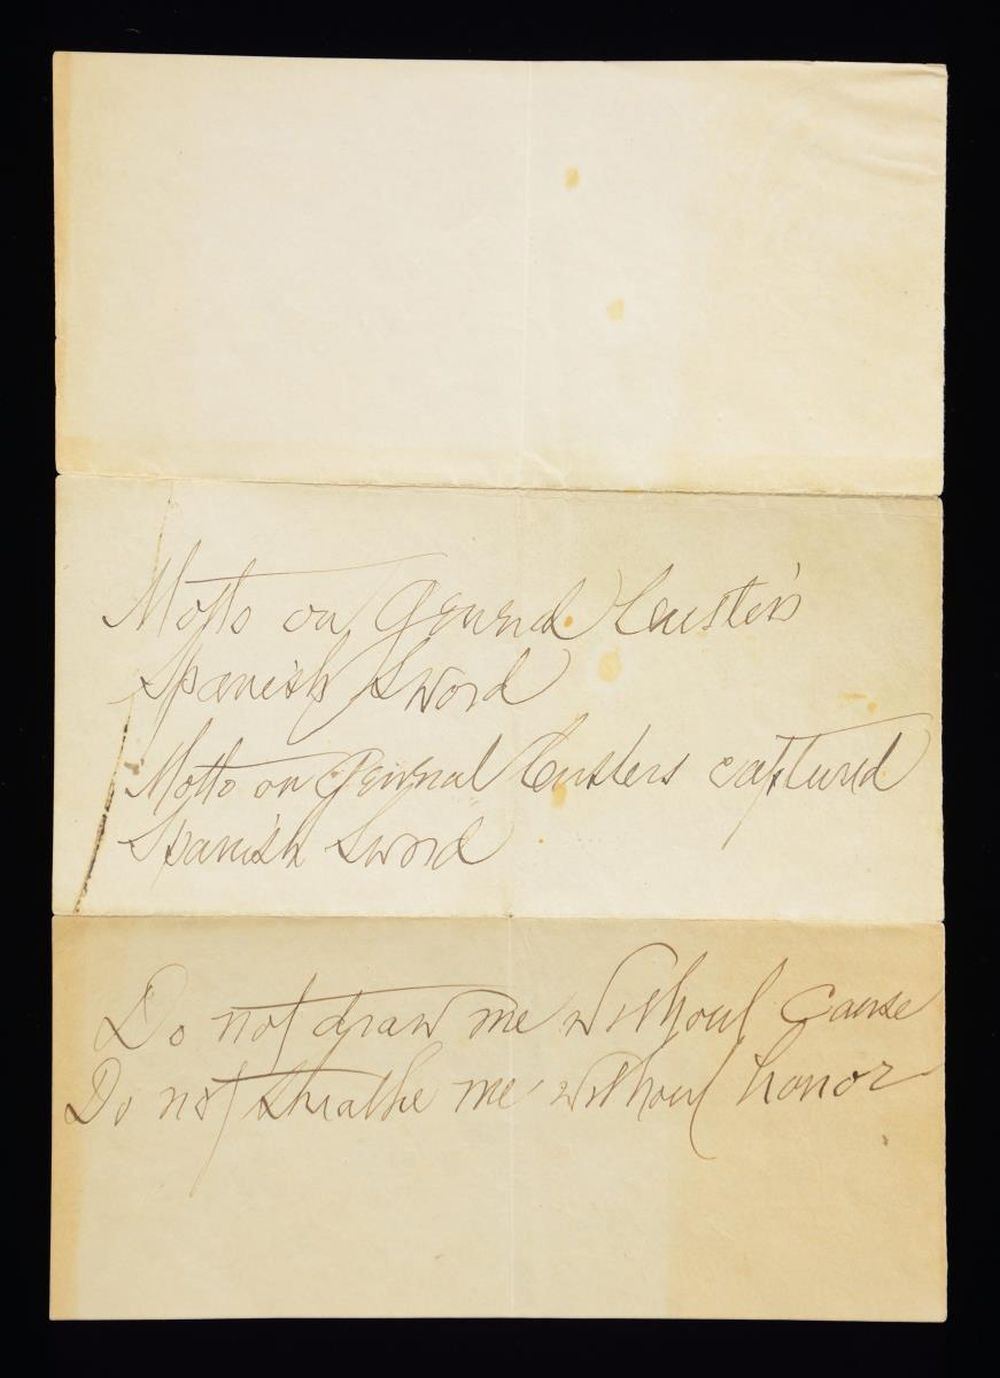 Motto on General Custer's
Spanish Sword
Motto on General Custers captured
Spanish Sword
Do not draw me without cause
Do not sheathe me without honor